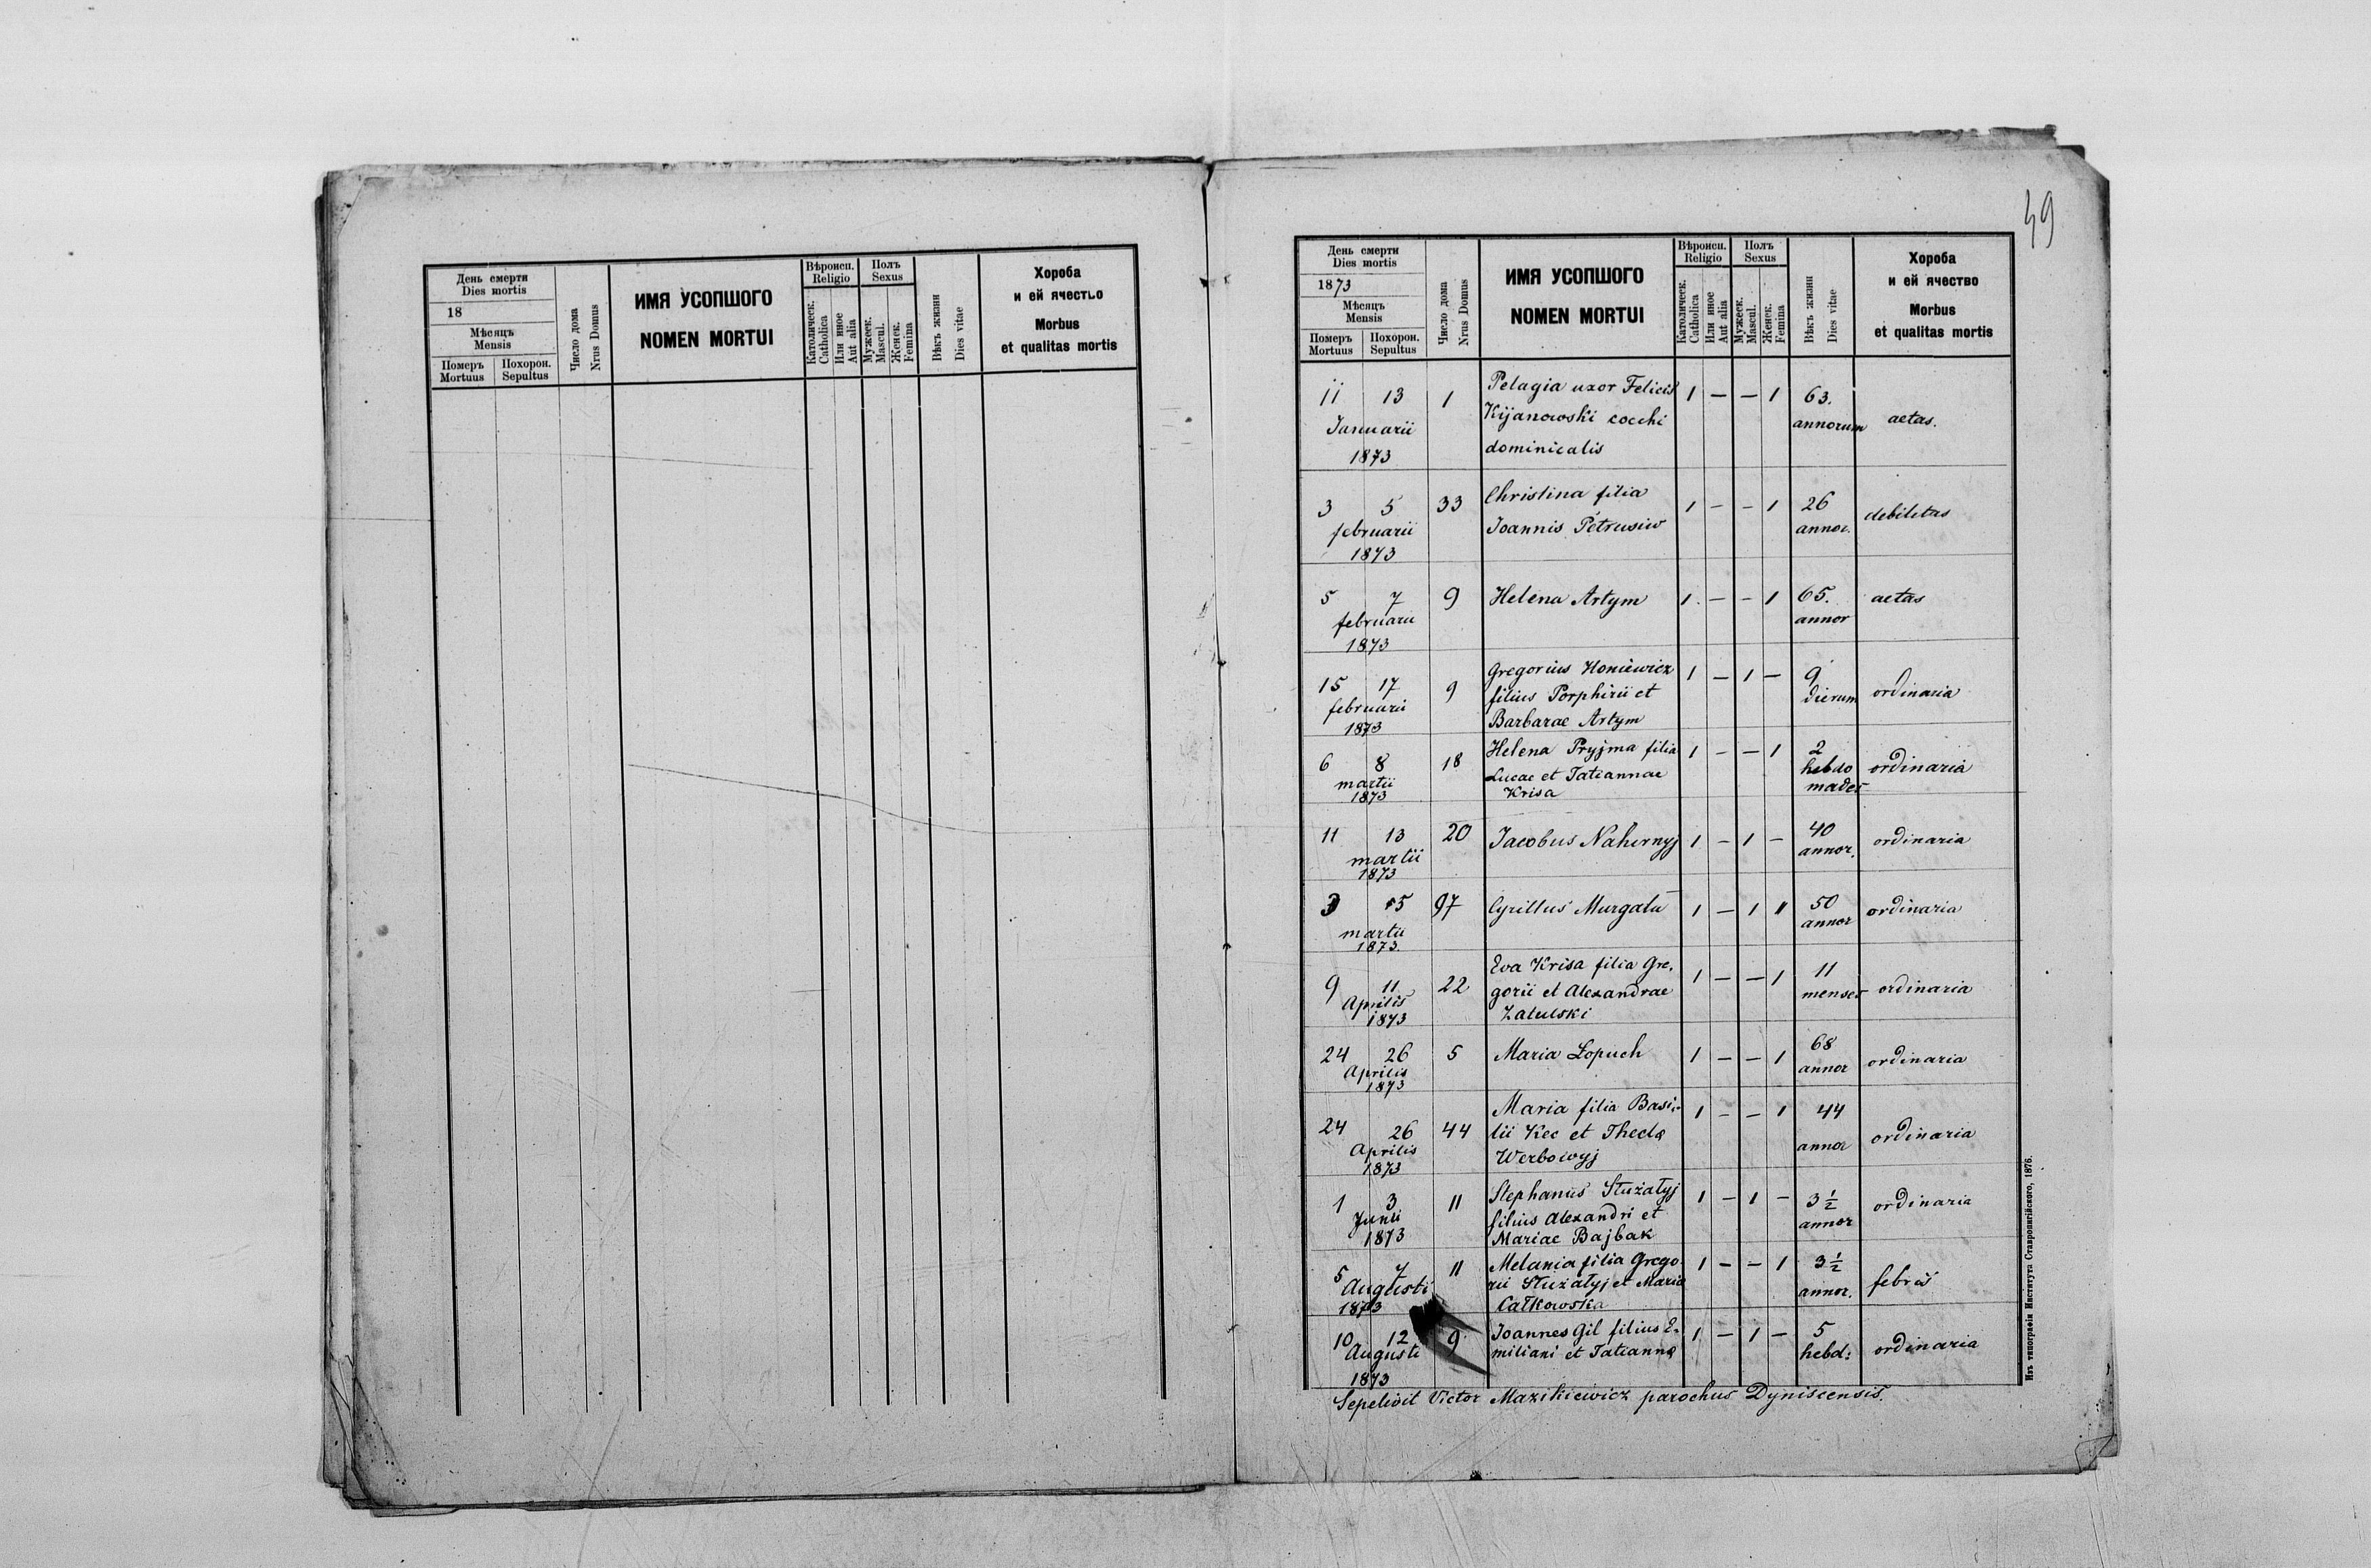 День смерти
Dies mortis
18
Мѣсяцъ
Mensis
Померъ
Mortuus
Похорон.
Sepultus
Число дома
Nrus Domus
ИМЯ УСОПШОГО
NOMEN MORTUI
Вѣроисп.
Religio
Католическ.
Catholica
Или иное
Aut alia
Полъ
Sexus
Мужеск.
Mascul.
Женск.
Femina
Вѣкъ жизни
Dies vitae
Хороба
и ей ячество
Morbus
et qualitas mortis
49
День смерти
Dies mortis
1873
Мѣсяцъ
Mensis
Померъ
Mortuus
Похорон.
Sepultus
Число дома
Nrus Domus
ИМЯ УСОПШОГО
NOMEN MORTUI
Вѣроисп.
Religio
Католическ.
Catholica
Или иное
Aut alia
Полъ
Sexus
Мужеск.
Mascul.
Женск.
Femina
Вѣкъ жизни
Dies vitae
Хороба
и ей ячество
Morbus
et qualitas mortis
11 13 1 Pelagia uxor Felicis 1 — — 1 63.
Januarii Kijanowski cocchi annorum aetas.
1873 dominicalis
3 5 33 Christina filia 1 - - 1 26 debilitas
februarii Joannis Petrusiw annor.
1873
5 7 9 Helena Artym 1. - - 1 65. aetas
februarii annor
1873
15 17 9 Gregorius Honiewicz 1 — 1 — 9 ordinaria
februarii filius Porphirii et dierum
1873 Barbarae Artym
6 8 18 Helena Pryjma filia 1 - — 1 2 ordinaria
martii Lucae et Tatiannae hebdo
1873 Krisa mades
11 13 20 Jacobus Nahirnyj 1 - 1 - 40 ordinaria
martii annor.
1873
3 5 97 Cyrillus Murgala 1 — 1 1 50 ordinaria
martii annor
1873.
9 11 22 Eva Krisa filia Gre, 1 — — 1 11 ordinaria
Aprilis gorii et Alexandrae menses
1873 Zalulski
24 26 5 Maria Łopuch 1 — — 1 68 ordinaria
Aprilis annor
1873
24 26 44 Maria filia Basi- 1 - — 1 44 ordinaria
Aprilis lii Kec et Theclæ annor
1873 Werbowyj
1 3 11 Stephanus Stużałyj 1 — 1 - 3½ ordinaria
Junii filius Alexandri et annor
1873 Mariae Bajbak
5 7 11 Melania filia Grego- 1 - — 1 3½ febris
Augusti rii Stużałyj et Maria annor.
1873 Całkowska
10 12 9 Joannes Gil filius E- 1 — 1 — 5 ordinaria
Augusti miliani et Tatiannæ hebd:
1873
Sepelivit Victor Mazikiewicz parochus Dyniscensis.
Изъ типографіи Института Ставропигійского, 1876.